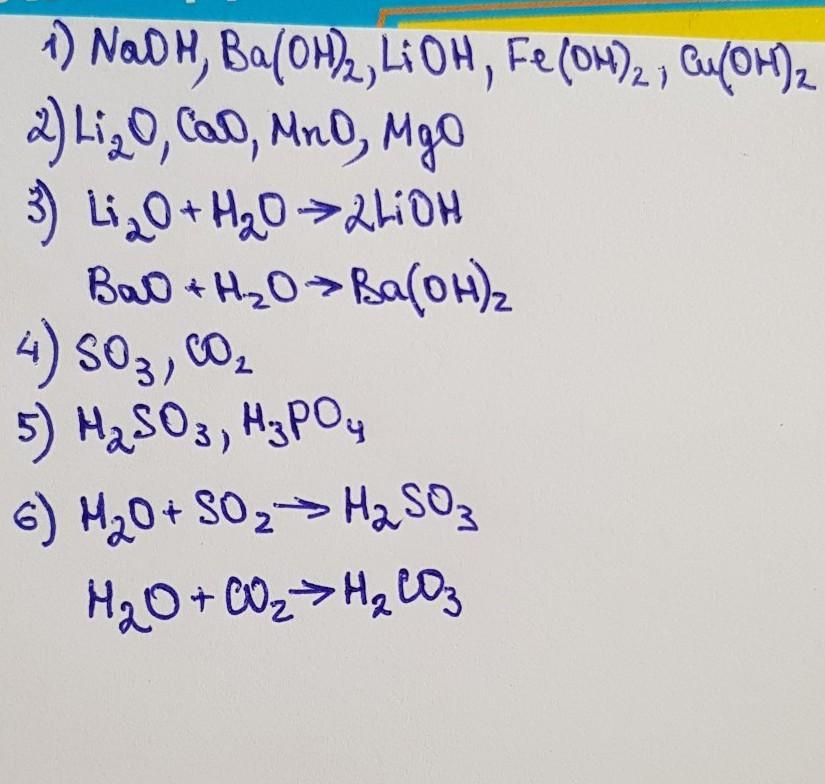 1) NaOH, Ba(OH)₂, LiOH, Fe(OH)₂, Cu(OH)₂
2) Li₂O, CaO, MnO, MgO
3) Li₂O + H₂O → 2LiOH
BaO + H₂O → Ba(OH)₂
4) SO₃, CO₂
5) H₂SO₃, H₃PO₄
6) H₂O + SO₂ → H₂SO₃
H₂O + CO₂ → H₂CO₃